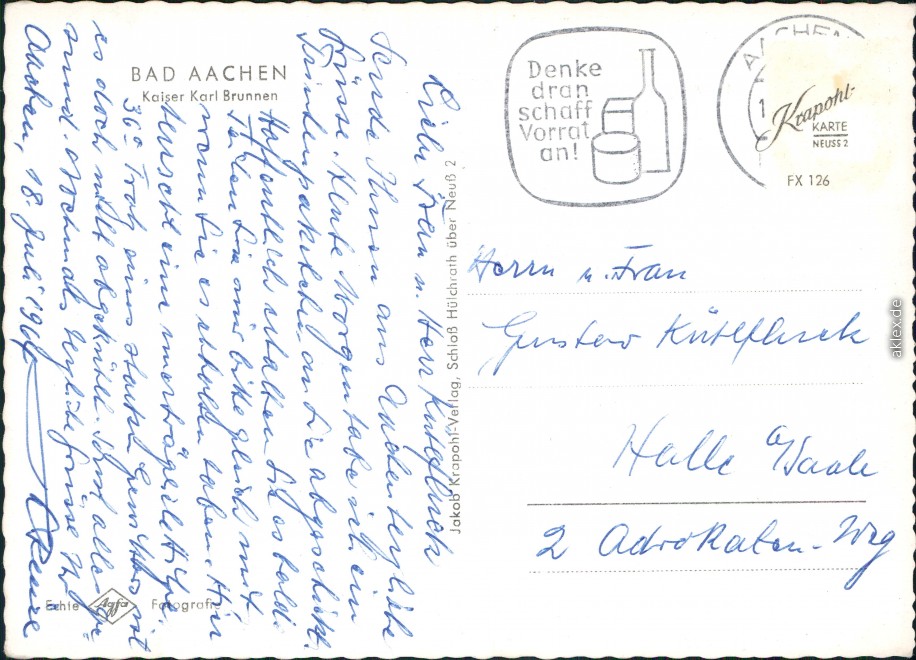 BAD AACHEN
Kaiser Karl Brunnen
Denke
dran
schaff
Vorrat
an!
AACHEN
1
Krapohl-
KARTE
NEUSS 2
FX 126
Herrn u. Frau
Gustav Kühlfluck
Halle a/Saale
2 Advokaten-Weg
Liebe Frau u. Herr Kühlfluck
Sende Ihnen aus Aachen herzliche
Grüsse. Heute Morgen habe ich ein
päckchen an Sie abgeschickt.
Hoffentlich erhalten Sie es bald.
Teilen Sie mir bitte gleich mit
wann Sie es erhalten haben. Hier
herrscht eine unerträgliche Hitze.
36° Trotz eines starken Gewitters ist
es doch nicht abgekühlt. Sonst alles ge-
sund. Nochmals herzliche Grüsse Ihr
Aachen, 18. Juli 1964
Jakob Krapohl-Verlag, Schloß Hülchrath über Neuß 2
Echte Agfa Fotografie
aklex.de